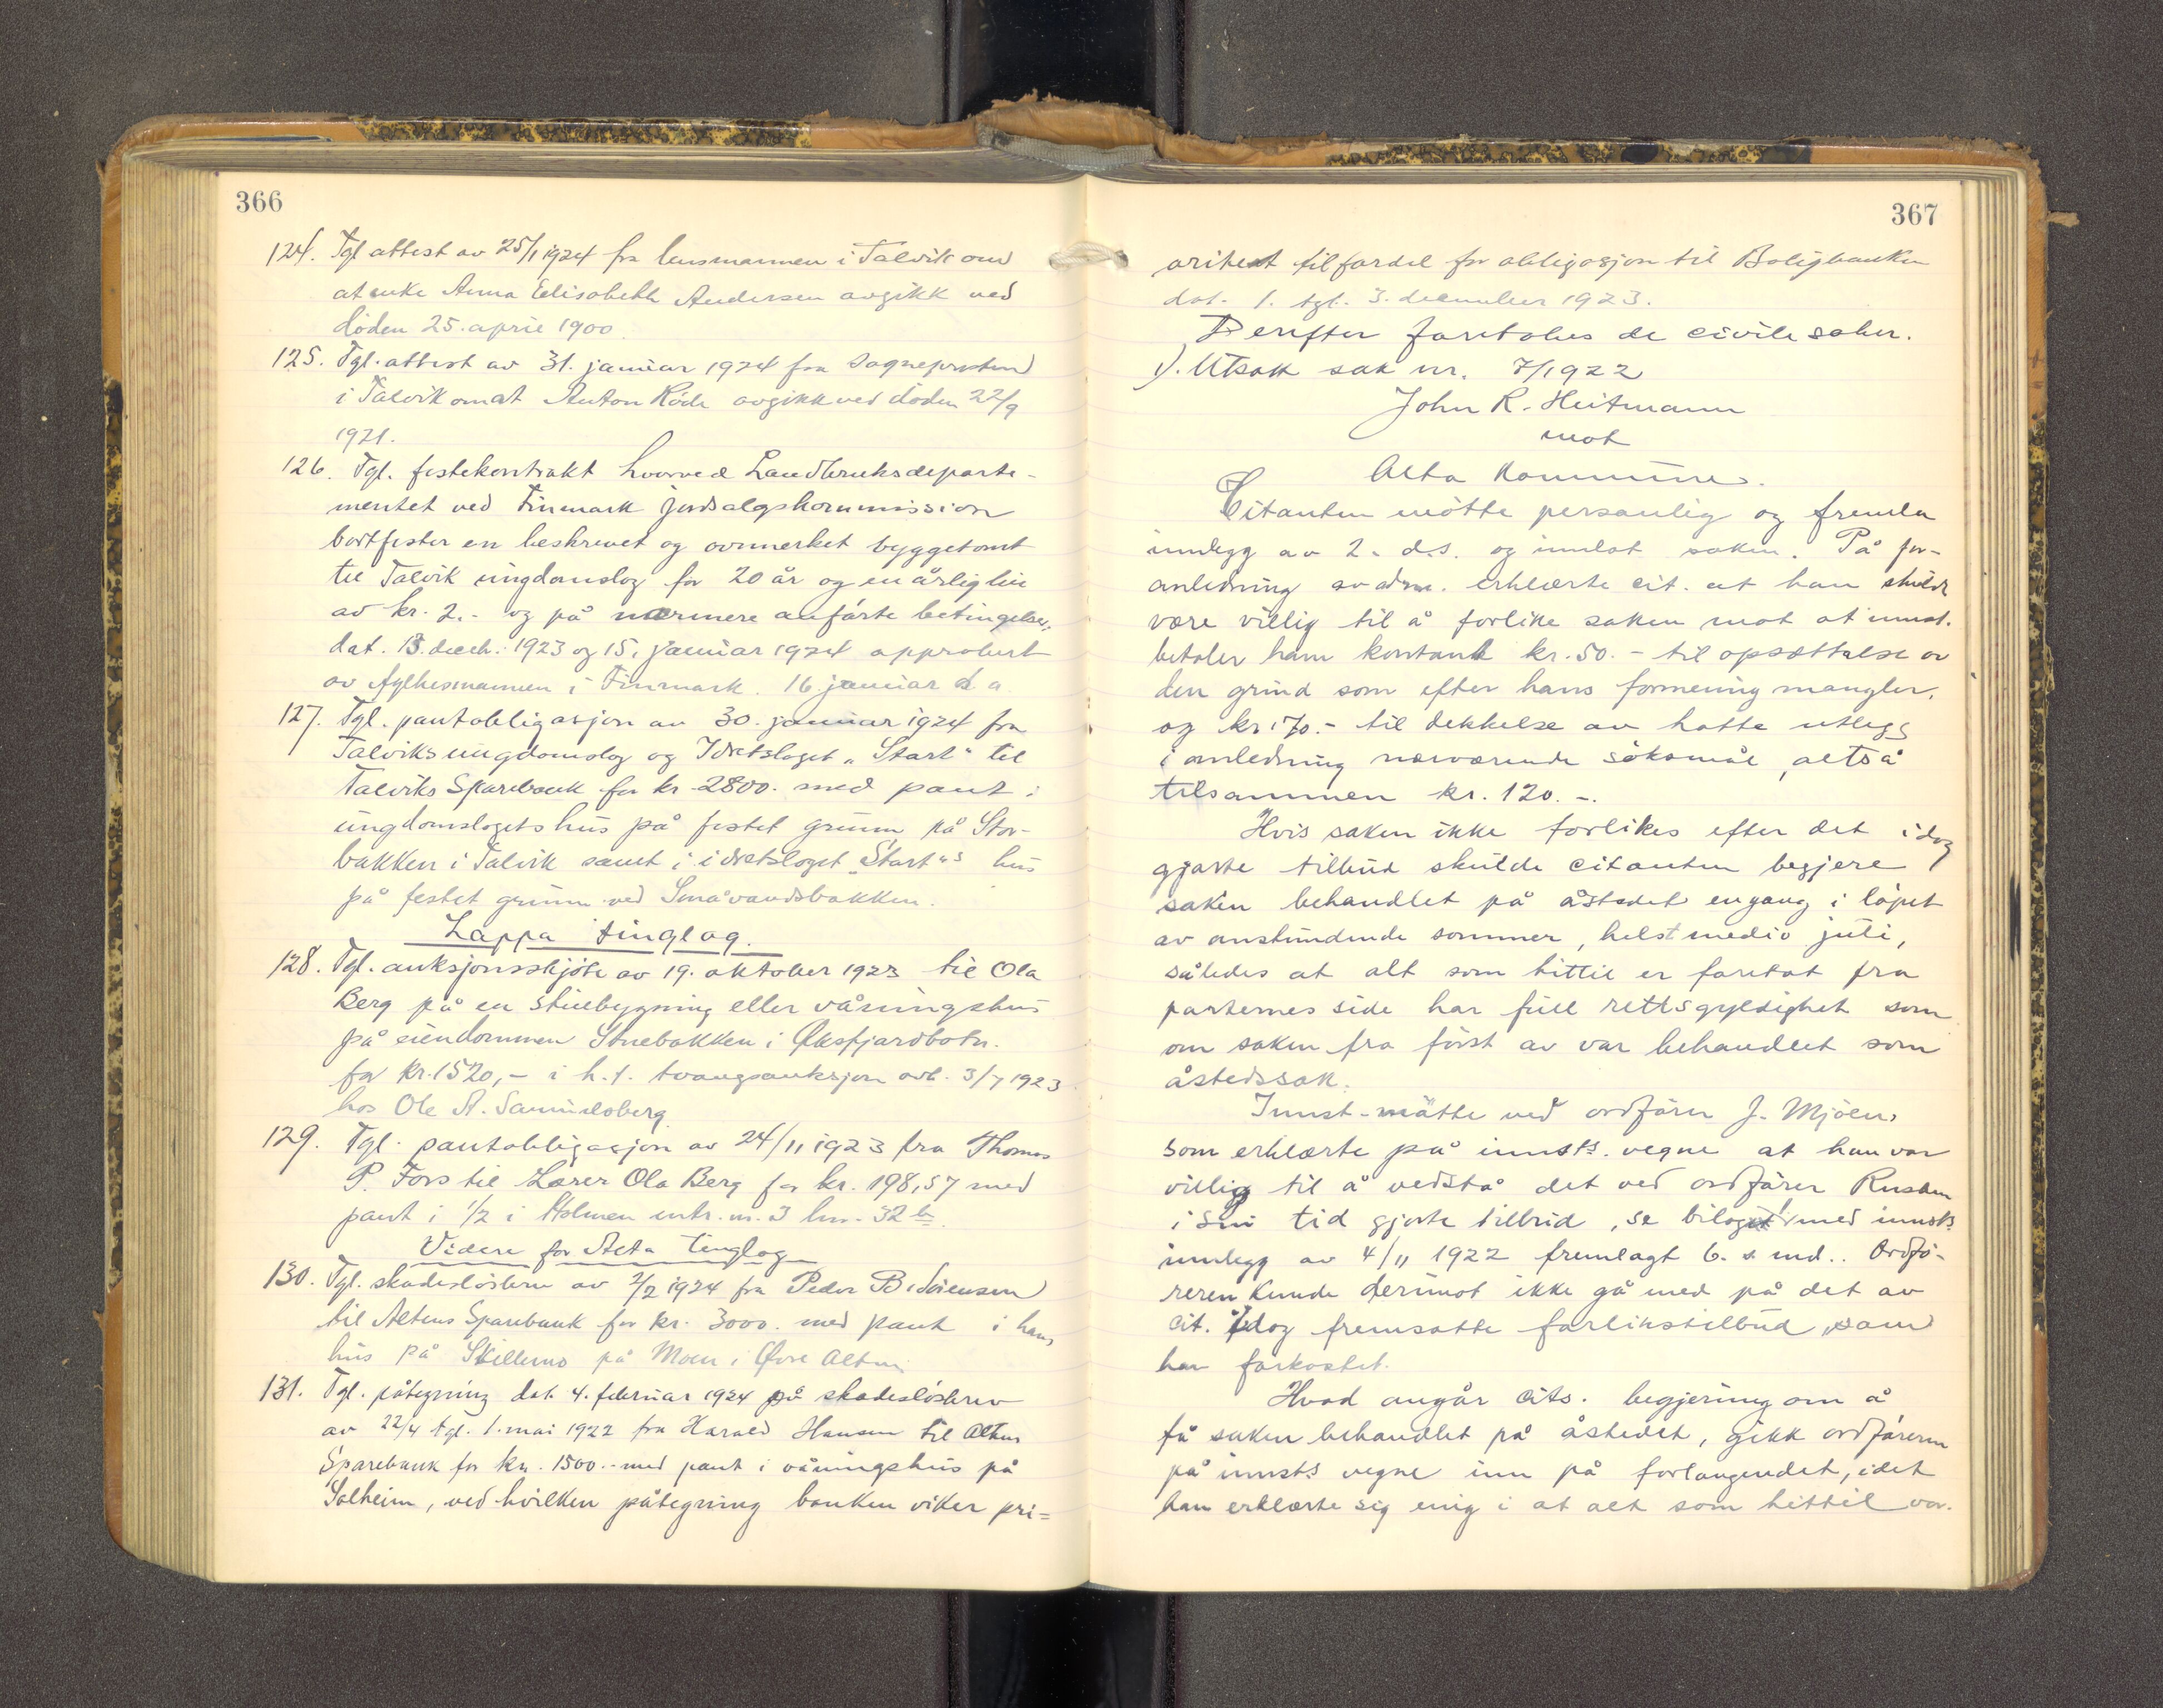 366
124. Tgl attest av 25/1 1924 fra lensmannen i Talvik om
at enke Anna Elisabeth Andersen avgikk ved
døden 25. april 1900
125. Tgl. attest av 31. januar 1924 fra sogneprsten
i Talvik om at Anton Röde avgikk ved døden 22/9
1921.
126. Tgl. festekontrakt hvorved Landbruksdeparte-
mentet ved Finmark jordsalgskommission
bortfester en beskrevet og avmerket byggetomt
til Talvik ungdomslag for 20 år og en årlig leie
av kr. 2.- og på nærmere anførte betingelser,
dat. 13. decch. 1923 og 15. januar 1924 approbert
av fylkesmannen i Finmark. 16 januar d. a.
127. Tgl. pantobligasjon av 30. januar 1924 fra
Talviks ungdomslag og Idrætslaget "Start" til
Talviks Sparebank for kr. 2800. med pant i
ungdomslagets hus på festet grunn på Stor-
bakken i Talvik samt i idrætslaget "Start"s hus
på festet grunn ved Småvandsbakken.
Loppa tinglag.
128. Tgl. auksjonsskjöte av 19. oktober 1923 til Ola
Berg på en stuebygning eller våningshus
på eiendommen Stuebakken i Øksfjordbotn.
for kr. 1520,- i h. t. tvangsauksjon avh. 3/7 1923
hos Ole A. Samuelsberg.
129. Tgl. pantobligasjon av 24/11 1923 fra Thomas
P. Fors til Lærer Ola Berg for kr. 198,57 med
pant i 1/2 i Holmen mtr. nr. 3 lnr. 32 b
Videre for Alta tinglag
130. Tgl. skadeslösbrev av 2/2 1924 fra Peder B. Sörensen
til Altens Sparebank for kr. 3000. med pant i hans
hus på Skillemo på Moen i Øvre Alten.
131. Tgl. påtegning dat. 4. februar 1924 på skadeslösbrev
av 22/4 tgl. 1. mai 1922 fra Harald Hansen til Altens
Sparebank for kr. 1500.- med pant i våningshus på
Solheim, ved hvilken påtegning banken viker pri=
367
oritet til fordel for obligasjon til Boligbanken
dat. 1. tgl. 3. december 1923.
Derefter foretokes de civile saker.
1). Utsatt sak nr. 7/1922
John R. Heitmann
mot
Alta Kommune.
Citanten mötte personlig og fremla
innlegg av 2. d.s. og innlot saken. På for-
anledning av adm. erklærte cit. at han skulde
være villig til å forlike saken mot at innst.
betaler ham kontant kr. 50.- til opsættelse av
den grind som efter hans formening mangler,
og kr. 70.- til dekkelse av hatte utlegg
i anledning nærværende söksmål, altså
tilsammen kr. 120.-.
Hvis saken ikke forlikes efter det idag
gjorte tilbud skulde citanten begjere
saken behandlet på åstedet engang i löpet
av anstundende sommer, helst medio juli,
således at alt som hittil er foretat fra
parternes side har full rettsgyldighet som
om saken fra först av var behandlet som
åstedssak.
Innst. mötte ved ordförer J. Mjöen,
som erklærte på innsts. vegne at han var
villig til å vedstå det ved ordförer
i sin tid gjorte tilbud, se bilaget med innsts
innlegg av 4/11 1922 fremlagt 6. s. md.. Ordfö-
reren kunde derimot ikke gå med på det av
cit. idag fremsatte forlikstilbud, som
han forkastet.
Hvad angår cits. begjering om å
få saken behandlet på åstedet, gikk ordföreren
på innsts vegne inn på forlangendet, idet
han erklærte sig enig i at alt som hittil var